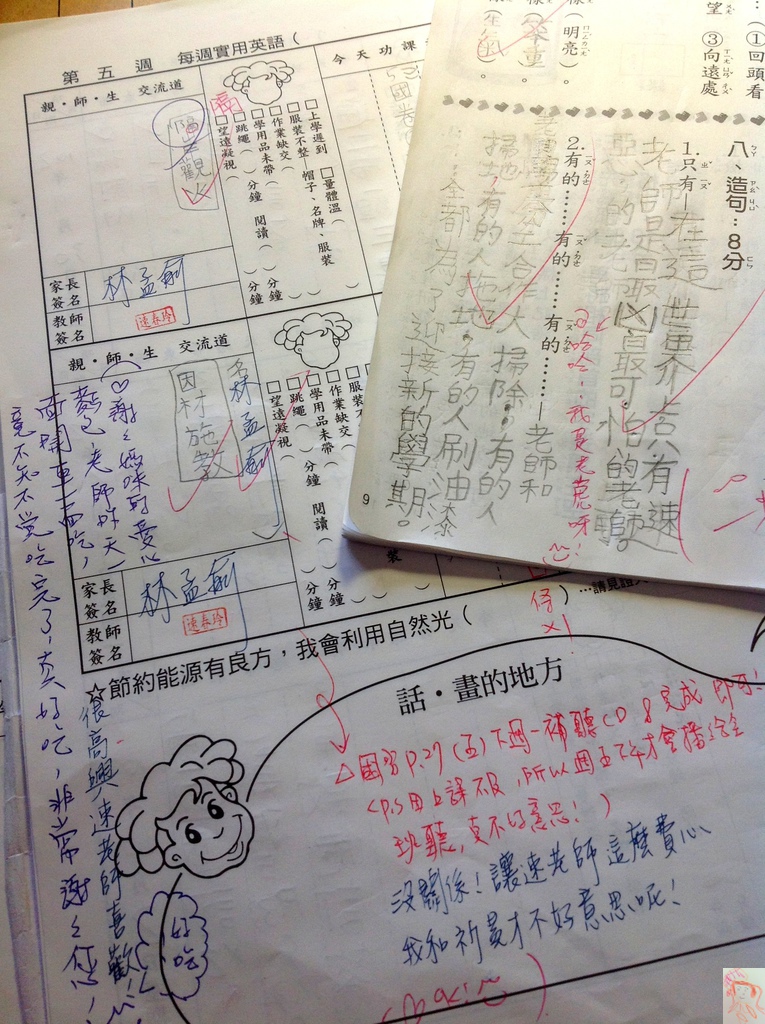 第五週 每週實用英語(
親·師·生 交流道
今天功課
樂觀
□上學遲到 □量體溫(
□服裝不整 帽子、名牌、服裝
□作業缺交(
□學用品未帶(
□跳繩( )分鐘 閱讀( )分鐘
□望遠凝視( )分鐘
家長簽名
林孟莉
教師簽名
速春玲
親·師·生 交流道
名林孟莉
因材施教
□服裝不
□作業缺交
□學用品未帶(
□跳繩( )分鐘 閱讀( )分鐘
□望遠凝視( )分鐘
家長簽名
林孟莉
教師簽名
速春玲
…請見證人
☆節約能源有良方,我會利用自然光(
話·畫的地方
△國習P.27(五)下週一補聽CD 8完成即可!
(P.S 因上課不及,所以週五下午才會播給全
班聽,真不好意思!)
沒關係!讓速老師這麼費心、
我和祈晏才不好意思呢!
♡謝謝媽咪的愛心
麵包,老師昨天一
面開車一面吃,
竟不知不覺吃完了,真好吃,非常謝謝您!
很高興速老師喜歡!
好吃
望
①回頭看
③向遠處
(明亮)。
八、造句:8分
1.只有—在這世界上只有速
老師是最凶最可怕的老師。
2.有的……有的……有的……—老師和
全都為了迎接新的學期。
掃地,有的人拖地,有的人刷油漆
合作大掃除,有的人
哈哈!我是老虎呀!
9